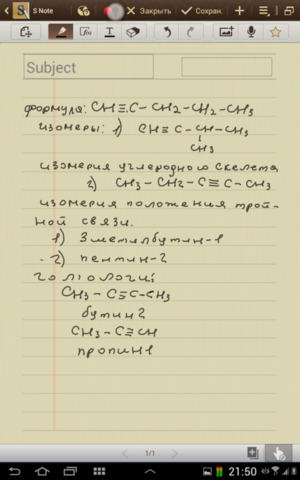 S Note
Закрыть
Сохран.
Subject
формула: CH≡C-CH2-CH2-CH3
изомеры: 1) CH≡C-CH-CH3
CH3
изомерия углеродного скелета
2) CH3-CH2-C≡C-CH3
изомерия положения трой-
ной связи.
1) 3метилбутин-1
2) пентин-2
гомологи:
CH3-C≡C-CH3
бутин2
CH3-C≡CH
пропин1
1/1
21:50